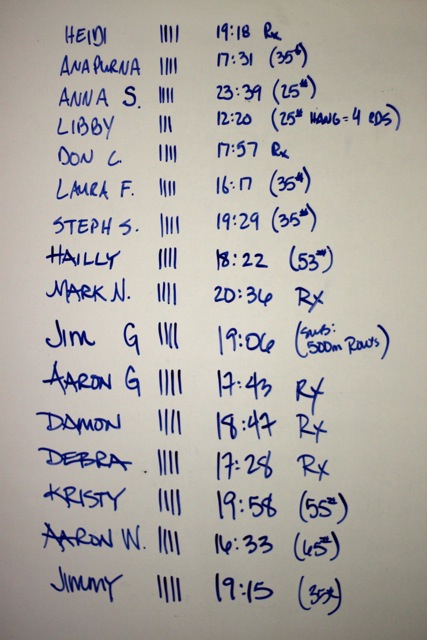 HEIDI |||| 19:18 Rx
ANAPURNA |||| 17:31 (35#)
ANNA S. |||| 23:39 (25#)
LIBBY ||| 12:20 (25# HANG = 4 RDS)
DON C. |||| 17:57 Rx
LAURA F. |||| 16:17 (35#)
STEPH S. |||| 19:29 (35#)
HAILLY |||| 18:22 (53#)
MARK N. |||| 20:36 Rx
Jim G |||| 19:06 (SUB: 500m Rows)
AARON G |||| 17:43 Rx
DAMON |||| 18:47 Rx
DEBRA |||| 17:28 Rx
KRISTY |||| 19:58 (55#)
AARON W. |||| 16:33 (65#)
JIMMY |||| 19:15 (35#)